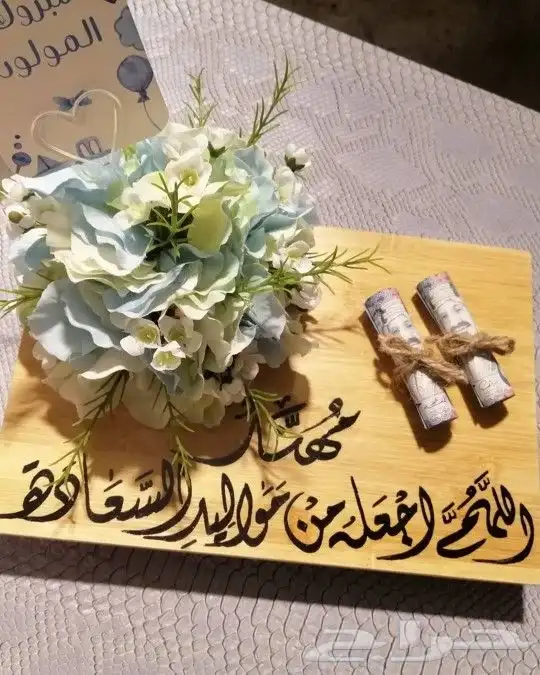 مبروك
المولود
مُهنَّد
اللَّهُمَّ اجْعَلهَ مِنْ مَوَاليدِ السَّعَادة
حراج